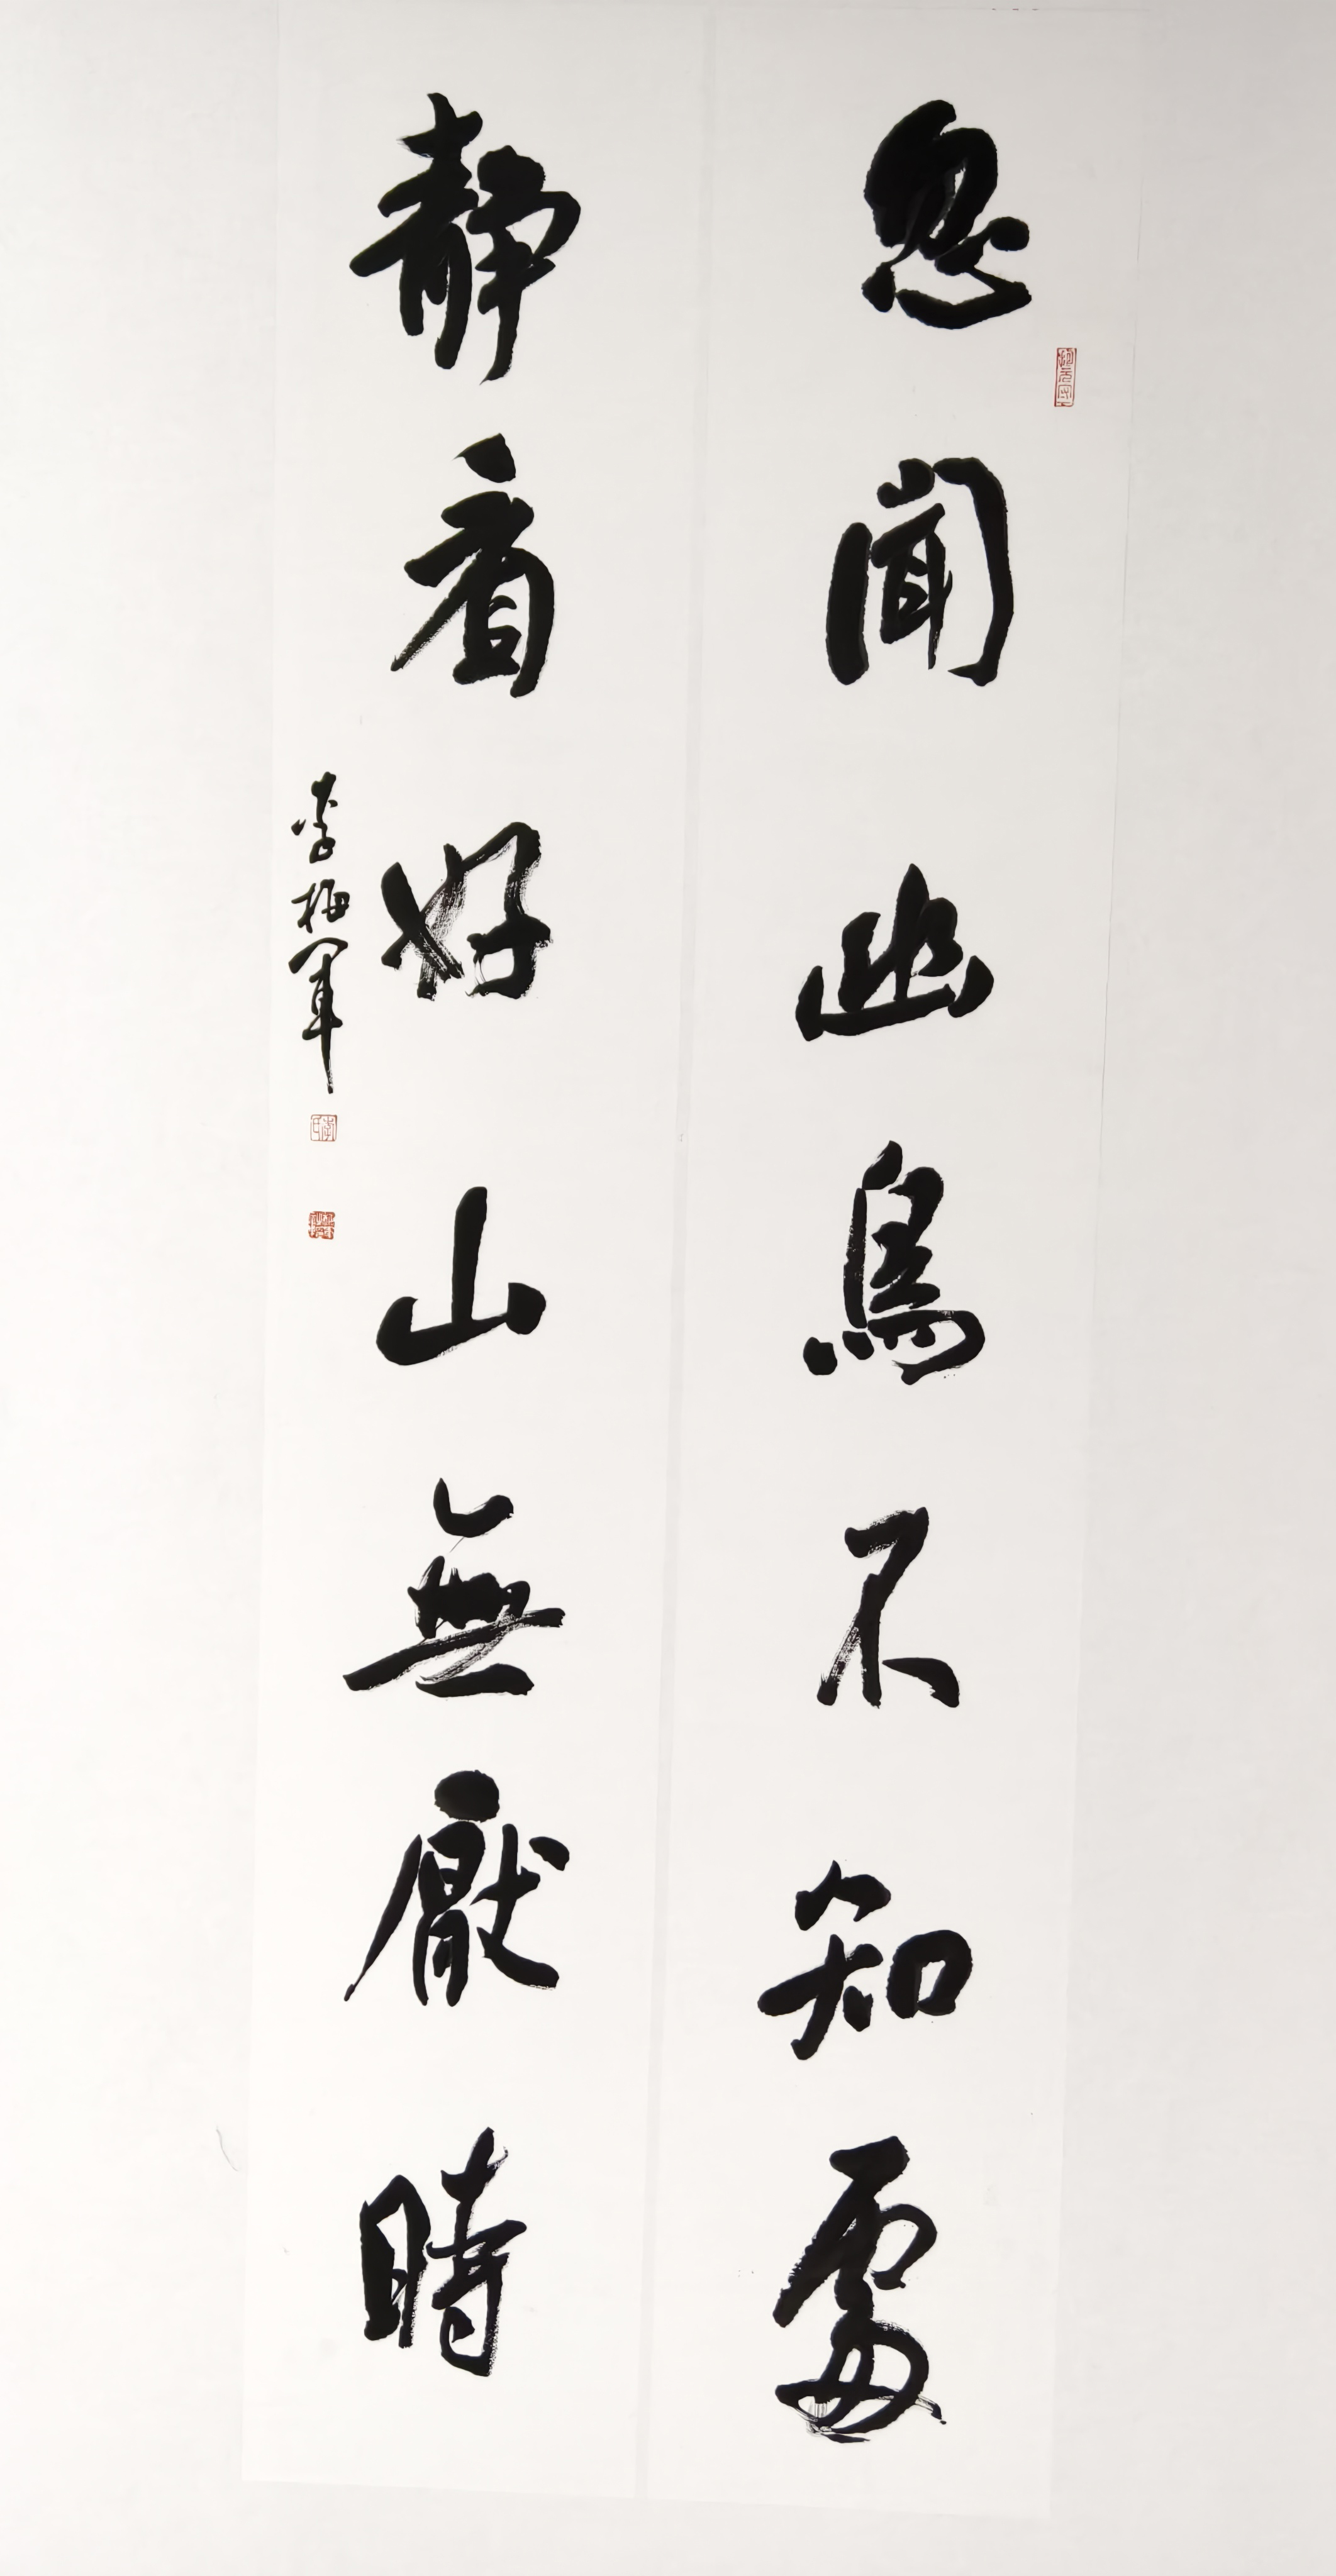 忽聞幽鳥不知處
靜看好山無厭時
李梅軍